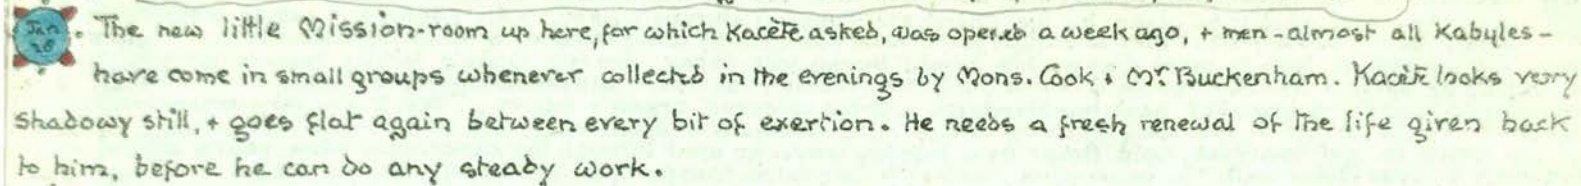 Jan 28. The new little Mission-room up here, for which Kacète asked, was opened a week ago, + men - almost all Kabyles -
have come in small groups whenever collected in the evenings by Mons. Cook + Mr. Buckenham. Kacète looks very
shadowy still, + goes flat again between every bit of exertion. He needs a fresh renewal of the life given back
to him, before he can do any steady work.